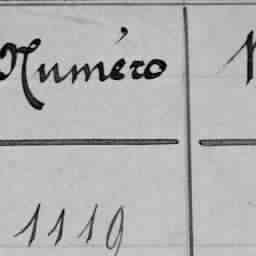 Numéro
1119